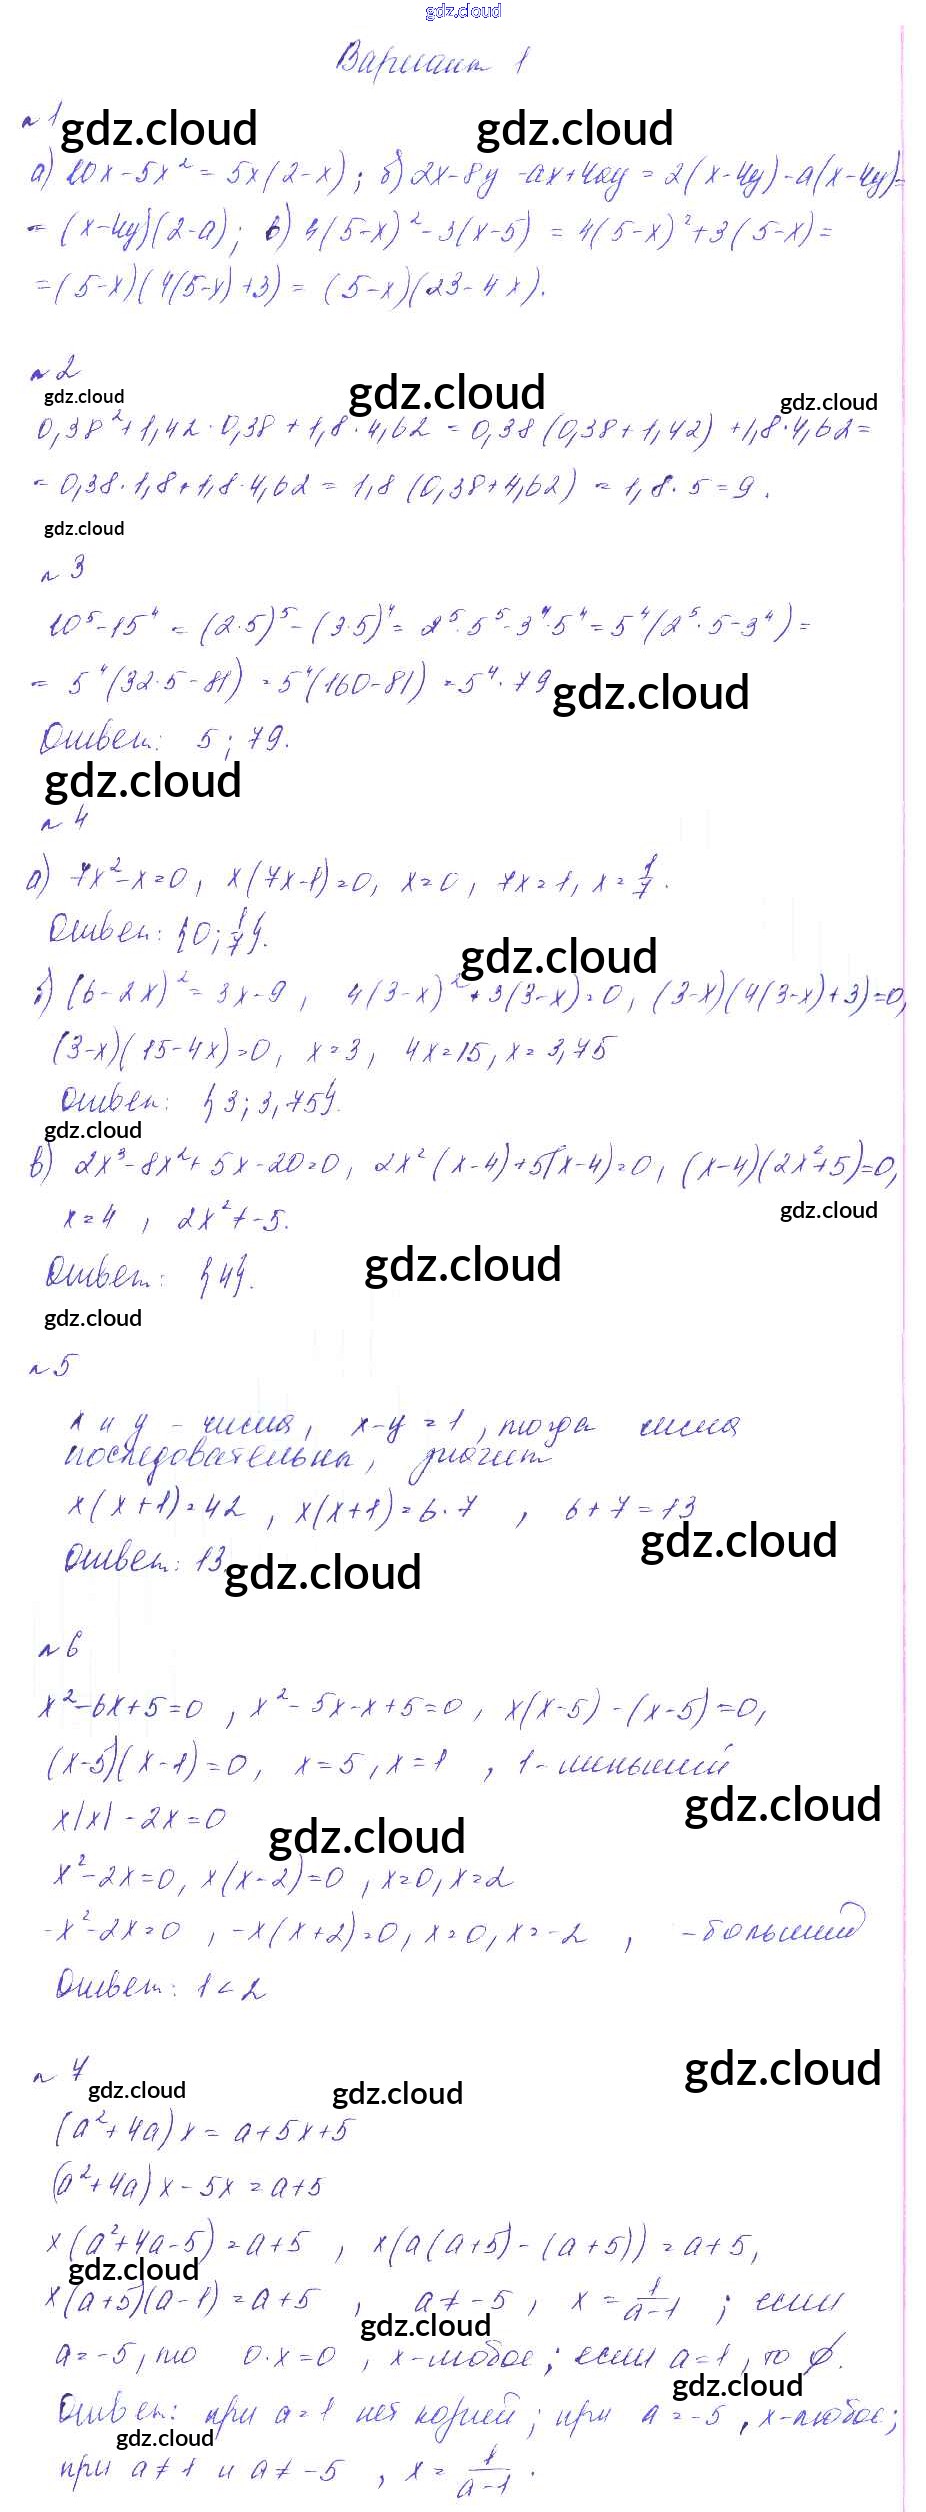 gdz.cloud
Вариант 1
№ 1
gdz.cloud gdz.cloud
а) 10x - 5x² = 5x(2-x); б) 2x-8y -ax+4ay = 2(x-4y)-a(x-4y)=
= (x-4y)(2-a); в) 4(5-x)² - 3(x-5) = 4(5-x)² + 3(5-x) =
= (5-x)(4(5-x)+3) = (5-x)(23-4x).
№ 2
gdz.cloud gdz.cloud gdz.cloud
0,38² + 1,42 · 0,38 + 1,8 · 4,62 = 0,38 (0,38 + 1,42) + 1,8 · 4,62 =
= 0,38 · 1,8 + 1,8 · 4,62 = 1,8 (0,38 + 4,62) = 1,8 · 5 = 9.
gdz.cloud
№ 3
10⁵ - 15⁴ = (2·5)⁵ - (3·5)⁴ = 2⁵·5⁵ - 3⁴·5⁴ = 5⁴(2⁵·5 - 3⁴) =
= 5⁴(32·5 - 81) = 5⁴(160-81) = 5⁴·79
gdz.cloud
Ответ: 5; 79.
gdz.cloud
№ 4
а) 7x² - x = 0, x(7x-1)=0, x=0, 7x=1, x = 1/7.
Ответ: {0; 1/7}.
gdz.cloud
б) (6-2x)² = 3x-9, 4(3-x)² + 3(3-x) = 0, (3-x)(4(3-x)+3)=0,
(3-x)(15-4x)=0, x=3, 4x=15, x=3,75
Ответ: {3; 3,75}.
gdz.cloud
в) 2x³ - 8x² + 5x - 20 = 0, 2x²(x-4)+5(x-4)=0, (x-4)(2x²+5)=0,
gdz.cloud
x=4, 2x² ≠ -5.
gdz.cloud
Ответ: {4}.
gdz.cloud
№ 5
x и y - числа, x-y=1, тогда числа
последовательны, значит
x(x+1)=42, x(x+1)=6·7, 6+7=13
gdz.cloud
Ответ: 13.
gdz.cloud
№ 6
x² - 6x + 5 = 0, x² - 5x - x + 5 = 0, x(x-5) - (x-5) = 0,
(x-5)(x-1)=0, x=5, x=1, 1-меньший
gdz.cloud
x|x| - 2x = 0
gdz.cloud
x² - 2x = 0, x(x-2)=0, x=0, x=2
-x² - 2x = 0, -x(x+2)=0, x=0, x=-2, -больший
Ответ: 1 < 2
№ 7
gdz.cloud gdz.cloud gdz.cloud
(a² + 4a)x = a + 5x + 5
(a² + 4a)x - 5x = a + 5
x(a² + 4a - 5) = a + 5, x(a(a+5) - (a+5)) = a + 5,
gdz.cloud
x(a+5)(a-1) = a + 5, a ≠ -5, x = 1/(a-1); если
gdz.cloud
a = -5, то 0·x = 0, x-любое; если a = 1, то ∅.
gdz.cloud
Ответ: при a = 1 нет корней; при a = -5, x-любое;
gdz.cloud
при a ≠ 1 и a ≠ -5, x = 1/(a-1).